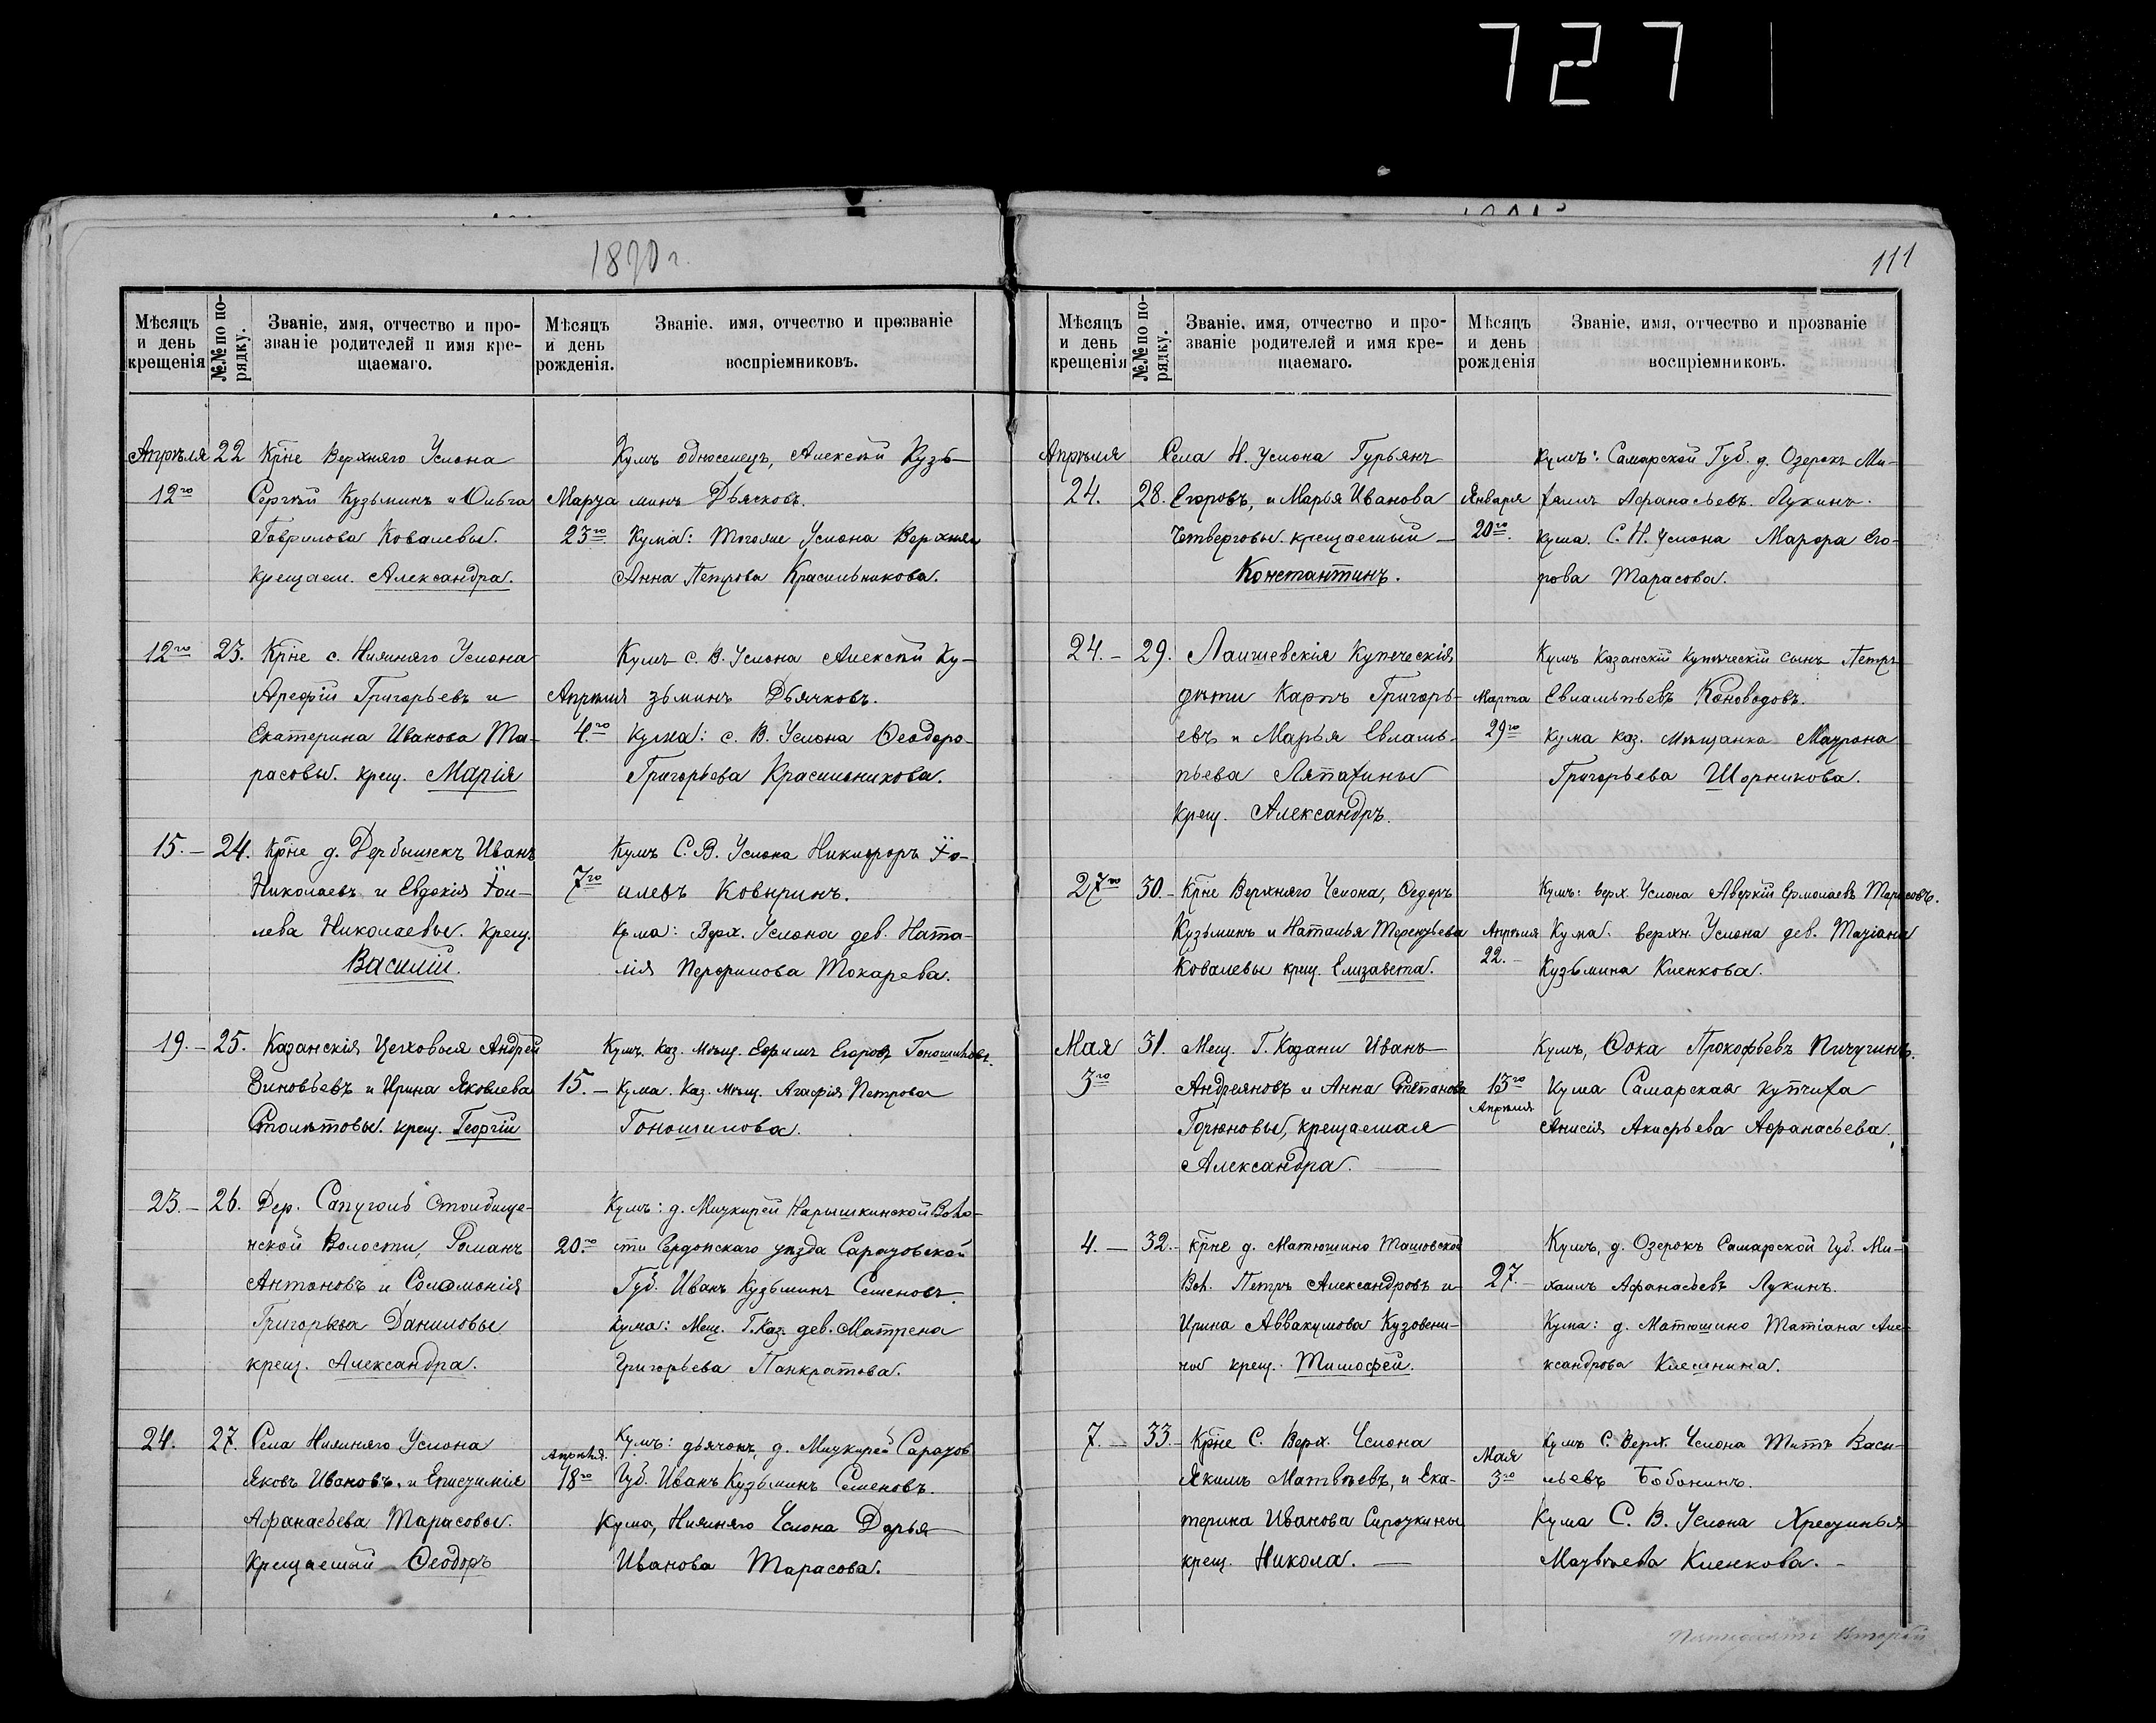 727
1890 г.
Мѣсяцъ и день крещенія
№№ по порядку.
Званіе, имя, отчество и прозваніе родителей и имя крещаемаго.
Мѣсяцъ и день рожденія.
Званіе, имя, отчество и прозваніе воспріемниковъ.
Апрѣля 22 Кр̃не Верхняго Услона
12го Сергѣй Кузьминъ и Ольга
Гаврилова Ковалевы.
крещаем. Александра.
Марта
23го
Кумъ односелецъ, Алексѣй Кузь-
минъ Дьясковъ.
Кума: тогоже Услона Верхняго
Анна Петрова Красильникова.
12го 23. Кр̃не с. Нижняго Услона
Арефій Григорьевъ и
Екатерина Иванова Та-
расовы. крещ. Марія
Апрѣля
4го
Кумъ с. В. Услона Алексѣй Ку-
зьминъ Дьячковъ.
Кума: с. В. Услона Ѳеодоро-
Григорьева Красильникова.
15.– 24. Кр̃не д. Дербышекъ Иванъ
Николаевъ и Евдокія
лева Николаевы. крещ.
Василій.
7го
Кумъ С. В. Услона Никифоръ
илевъ Ковыринъ.
Кума: Верх. Услона дев. Ната-
лія Перфилова Токарева.
19.– 25. Казанскія Цеховыя Андрей
Зиновьевъ и Ирина Яковлева
Столѣтовы. крещ. Георгій
15.–
Кумъ. Каз. Мѣщ. Ефимъ Егоровъ
Кума. Каз. Мѣщ. Агафія Петрова
Гоношилова.
23.– 26. Дер. Сапуголь Столбище-
нской Волости, Романъ
Антоновъ и Соломонія
Григорьева Даниловы
крещ. Александра.
20.го
Кумъ: д. Мичкирей Нарышкинской Воло-
сти Сердопскаго уѣзда Саратовской
Губ. Иванъ Кузьминъ Семеновъ.
Кума: Мещ. Г. Каз. дев. Матрена
Григорьева Панкратова.
24. 27. Села Нижняго Услона
Яковъ Ивановъ, и Епистимія
Афанасьева Тарасовы.
Крещаемый – Ѳеодоръ
Апрѣля.
18го
Кумъ: дьячокъ, д. Мичкирей Саратов
Губ. Иванъ Кузьминъ Семеновъ.
Кума, Нижняго Услона Дарья
Иванова Тарасова.
111
Мѣсяцъ и день крещенія
№№ по порядку.
Званіе, имя, отчество и прозваніе родителей и имя крещаемаго.
Мѣсяцъ и день рожденія
Званіе, имя, отчество и прозваніе воспріемниковъ.
Апрѣля Села Н. Услона Гурьянъ
24. 28. Егоровъ, и Марья Иванова
Четверговы. крещаемый –
Константинъ.
Января
20го.
Кумъ: Самарской Губ. д. Озерокъ Ми-
хаилъ Афанасьевъ. Лукинъ.
Кума. С. Н. Услона Марфа Его-
рова Тарасова.
24.– 29. Лаишевскія Купеческія
дѣти Карпъ Григорь-
евъ и Марья Евламь-
пьева Лятахины
крещ. Александръ.
Марта
29го
Кумъ Казанскій Купѣческій сынъ Петръ
Евламьпьевъ Коноводовъ.
Кума каз. мѣщанка Матрона
Григорьева Шорникова.
27го 30.– Кр̃не Верхняго Услона, Ѳедоръ
Кузьминъ и Наталья Терентьева
Ковалевы крещ. Елизавета.
Апрѣля
22.–
Кумъ: верх. Услона Аверкій Ермолаевъ Тарасовъ.
Кума: верхн. Услона дев. Татіана
Кузьмина Кленкова.
Мая 31. Мещ. Г. Казани Иванъ
3го Андреяновъ и Анна Степанова
Горюновы, крещаемая
Александра.
13го
Апрѣля
Кумъ, Фока Прокофьевъ Пичугинъ.
Кума Самарская купчиха
Анисія Акифьева Афанасьева.
4.– 32.– Кр̃не д. Матюшино Ташовской
Вол. Петръ Александровъ и
Ирина Аввакумова Кузовени-
ны крещ. Тимофей.
27.–
Кумъ, д. Озерокъ Самарской Губ. Ми-
хаилъ Афанасьевъ Лукинъ.
Кума: д. Матюшино Татіана Але-
ксандрова Клешнина.
7.– 33.– Кр̃не С. Верх. Услона
Якимъ Матвѣевъ, и Ека-
терина Иванова Сироткины
крещ. Никола. –
Мая
3го
Кумъ С. Верх. Услона Титъ Васи-
льевъ Бабанинъ.
Кума С. В. Услона Хрестинья
Матвѣева Кленкова. –
Пятидесятъ Второй